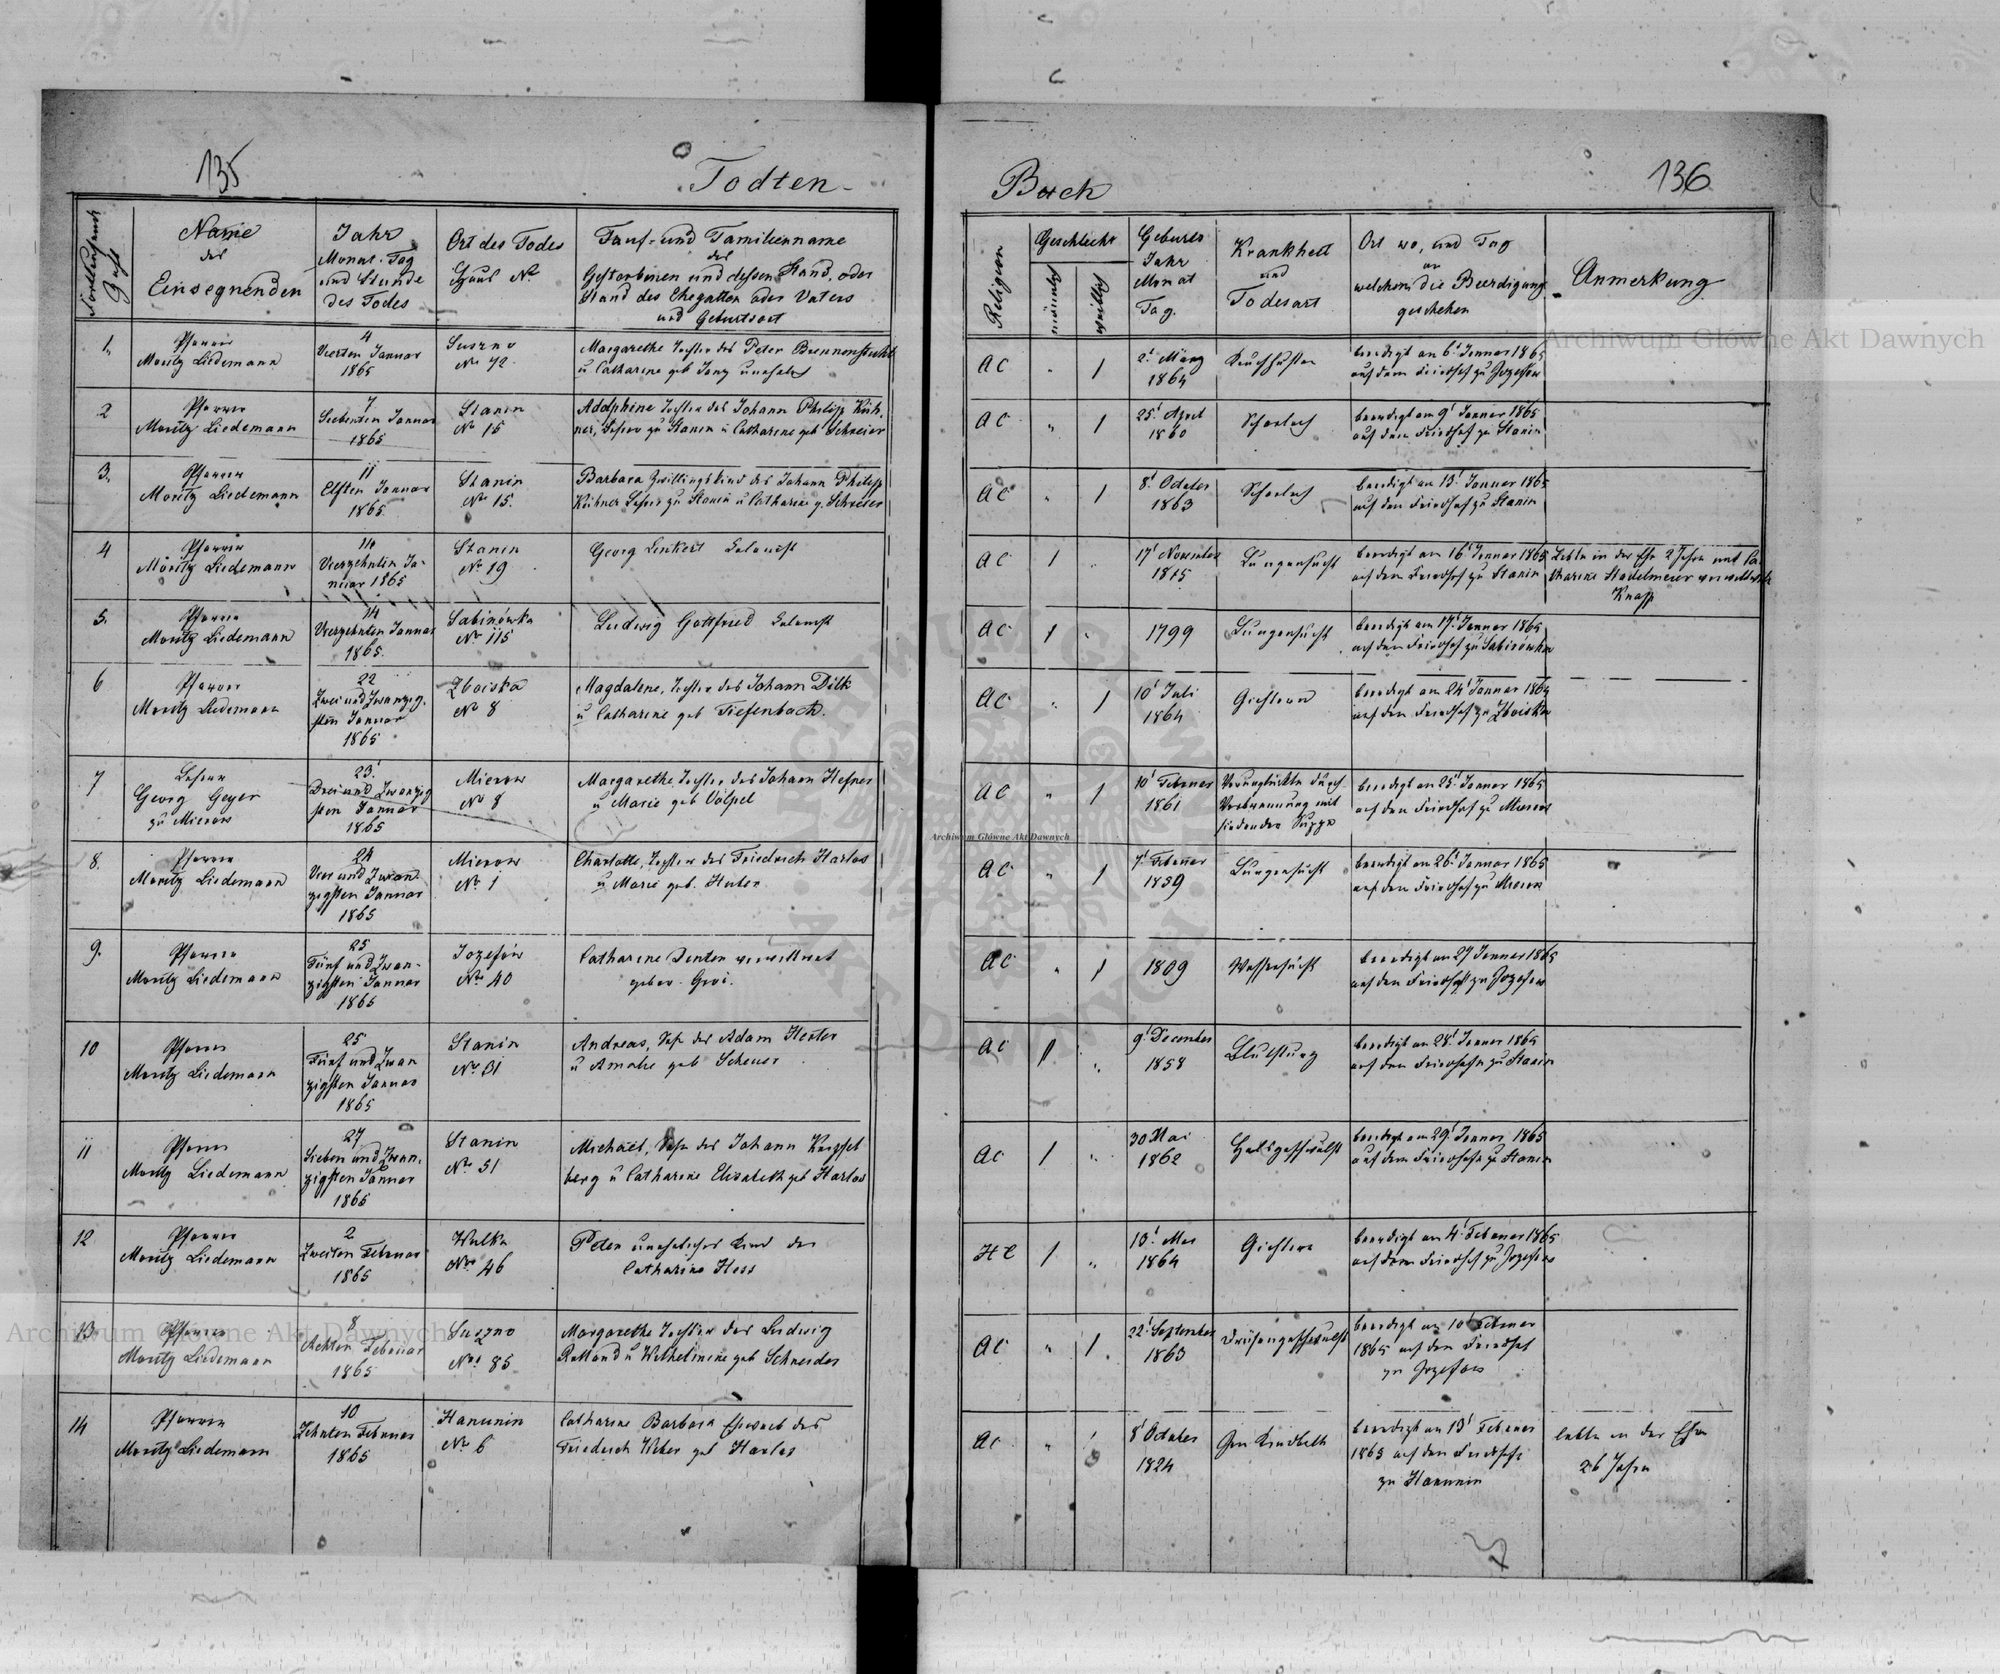 135
Todten-
Fortlaufende Zahl
Name
des
Einsegnenden
Jahr
Monat. Tag
und Stunde
des Todes
Ort des Todes
Haus No
Tauf- und Familienname
des
Gestorbenen und dessen Stand, oder
Stand des Ehegatten oder Vaters
und Geburtsort
1.
Pfarrer
Moritz Liedemann
4
Vierten Januar
1865
Suszno
No 72
Margarethe Tochter des Peter Brennenstuhl
u Catharine geb
2
Pfarrer
Moritz Liedemann
7
Siebenten Januar
1865
Stanin
No 15
Adolphine Tochter des Johann Philipp Küh-
ner, Lehrer zu Stanin u Catharine geb Schreier
3.
Pfarrer
Moritz Liedemann
11
Elften Januar
1865
Stanin
No 15.
Barbara Zwillingskind des Johann Philipp
Kühner Lehrer zu Stanin u Catharine g. Schreier
4
Pfarrer
Moritz Liedemann
14
Vierzehnten Ja-
nuar 1865
Stanin
No 19
Georg Linkert
5.
Pfarrer
Moritz Liedemann
14
Vierzehnten Januar
1865.
Sabinówka
No 115
Ludwig Gottfried
6
Pfarrer
Moritz Liedemann
22
Zwei und Zwanzig-
sten Januar
1865
Zboiska
No 8
Magdalene, Tochter des Johann Dilk
u Catharine geb Tiefenbach.
7
Lehrer
Georg Geyer
zu Mierow
23.
Drei und Zwanzig
sten Januar
1865
Mierow
No 8
Margarethe Tochter des Johann Hefner
u Marie geb Völpel
8.
Pfarrer
Moritz Liedemann
24
Vier und Zwan-
zigsten Januar
1865
Mierow
No 1
Charlotte, Tochter des Friedrich Harlos
u Marie geb. Huber
9.
Pfarrer
Moritz Liedemann
25
Fünf und Zwan-
zigsten Januar
1865
Jozefów
No 40
Catharine Denten verwittwet
gebor. Groi.
10
Pfarrer
Moritz Liedemann
25
Fünf und Zwan
zigsten Januar
1865
Stanin
No 31
Andreas, Sohn des Adam Hexter
u Amalie geb Scheuer
11
Pfarrer
Moritz Liedemann
27
Sieben und Zwan-
zigsten Januar
1865
Stanin
No 51
Michael, Sohn des Johann Knipfel
berg u Catharine Elisabeth geb Harlos
12
Pfarrer
Moritz Liedemann
2
Zweiten Februar
1865
Wulka
No 46
Peter uneheliches Kind der
Catharina Hess
13
Pfarrer
Moritz Liedemann
8
Achten Februar
1865
Suszno
No 85
Margarethe Tochter des Ludwig
Rolland u Wilhelmine geb Schneider
14
Pfarrer
Moritz Liedemann
10
Zehnten Februar
1865
Hanunin
No 6
Catharine Barbara Eheweib des
Friedrich Weber geb Harlos
136
Buch
Religion
Geschlecht
männlich
weiblich
Geburts
Jahr
Monat
Tag.
Krankheit
und
Todesart
Ort wo, und Tag
an
welchem die Beerdigung
geschehen
Anmerkung
AC
"
1
2. März
1864
Keuchhusten
beerdigt am 6. Januar 1865
auf dem Friedhof zu Jozefow
AC
"
1
25. April
1860
Scharlach
beerdigt am 9. Januar 1865
auf dem Friedhof zu Stanin
AC
"
1
8. October
1863
Scharlach
beerdigt am 13. Januar 1865
auf dem Friedhof zu Stanin
AC
1
"
17. November
1815
Lungensucht
beerdigt am 16. Januar 1865
auf dem Friedhof zu Stanin
Lebte in der Ehe 2 Jahre mit Ca-
tharine Stadelmeier verwittwete
Knapp
AC
1
"
1799
Lungensucht
beerdigt am 17. Januar 1865
auf dem Friedhof zu Sabinówka
AC
"
1
10. Juli
1864
beerdigt am 24. Januar 1865
auf dem Friedhof zu Zboiska
AC
"
1
10. Februar
1861
Verunglückte durch
Verbrennung mit
siedender Suppe
beerdigt am 25. Januar 1865
auf dem Friedhof zu Mierow
AC
"
1
7. Februar
1859
Lungensucht
beerdigt am 26. Januar 1865
auf dem Friedhof zu Mierow
AC
"
1
1809
Wassersucht
beerdigt am 27 Januar 1865
auf dem Friedhof zu Jozefow
AC
1
"
9. December
1858
beerdigt am 28. Januar 1865
auf dem Friedhofe zu Stanin
AC
1
"
30 Mai
1862
Halsgeschwulst
beerdigt am 29. Januar 1865
auf dem Friedhofe zu Stanin
HC
1
"
10. Mai
1864
beerdigt am 4. Februar 1865
auf dem Friedhof zu Jozefow
AC
"
1
22. September
1863
Drüsengeschwulst
beerdigt am 10 Februar
1865 auf dem Friedhof
zu Jozefow
AC
"
1
8. October
1824
Im Kindbette
beerdigt am 13. Februar
1865 auf dem Friedhofe
zu Hanunin
lebte in der Ehe
26 Jahre
Archiwum Główne Akt Dawnych
Archiwum Główne Akt Dawnych
Archiwum Główne Akt Dawnych
ARCHIWUM GŁÓWNE AKT DAWNYCH